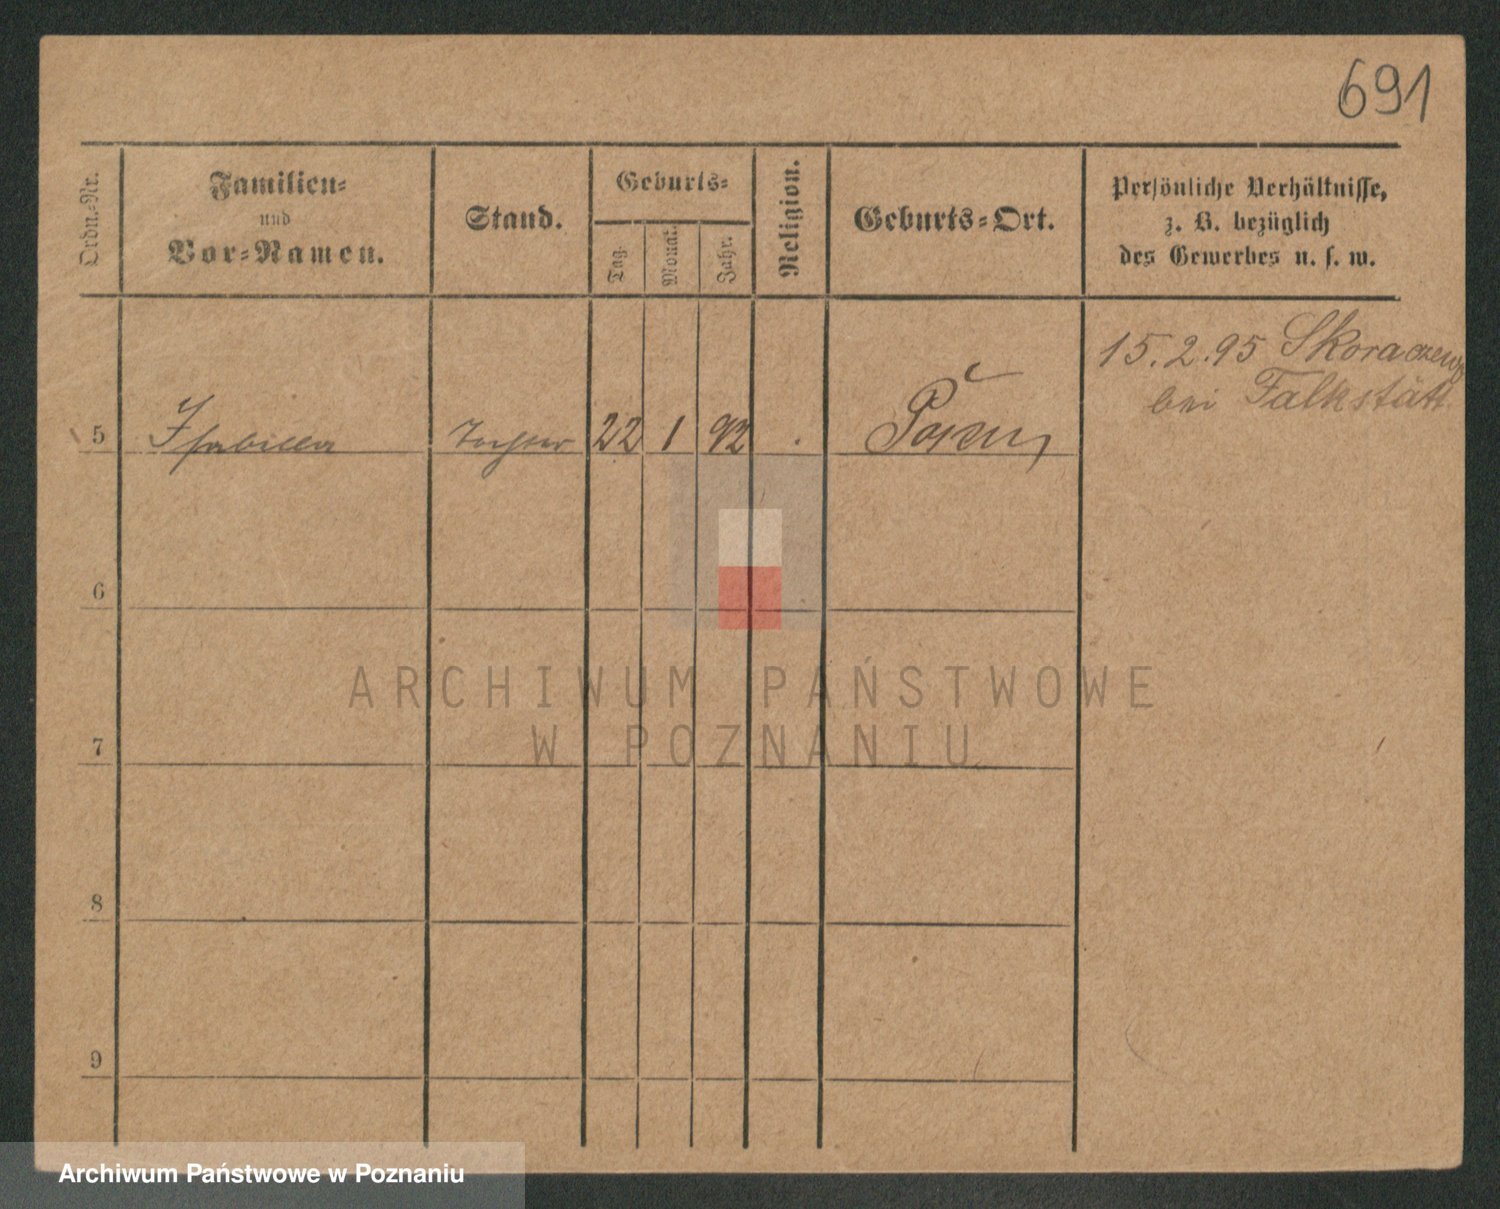 691
Ordn.-Nr.
Familien-
und
Vor-Namen.
Stand.
Geburts-
Tag.
Monat.
Jahr.
Religion.
Geburts-Ort.
Persönliche Verhältnisse,
z. B. bezüglich
des Gewerbes u. s. w.
15.2.95 Skoraczewo
bei Falkstätt
5 Isabella Tochter 22 1 92 Posen
6
7
8
9
ARCHIWUM PAŃSTWOWE
W POZNANIU
Archiwum Państwowe w Poznaniu